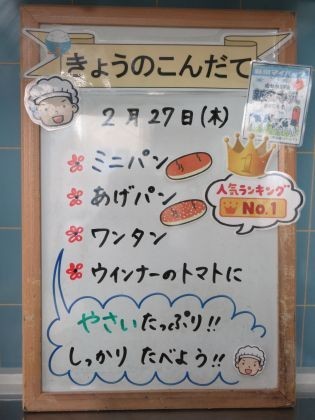 きょうのこんだて
2月27日(木)
ミニパン
あげパン
1
人気ランキング
No.1
ワンタン
ウインナーのトマトに
やさいたっぷり!!
しっかり たべよう!!